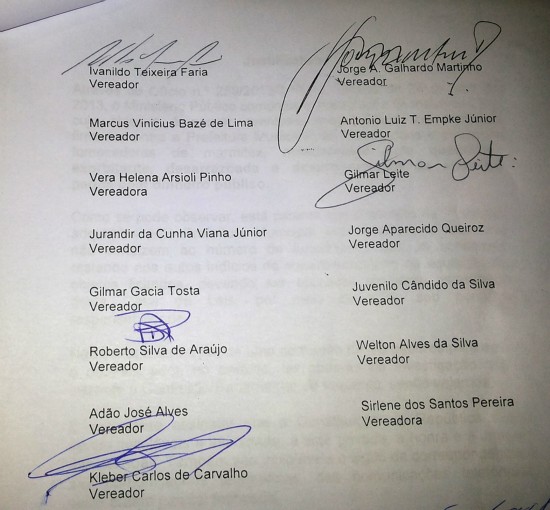 Ivanildo Teixeira Faria
Vereador
Marcus Vinicius Bazé de Lima
Vereador
Vera Helena Arsioli Pinho
Vereadora
Jurandir da Cunha Viana Júnior
Vereador
Gilmar Gacia Tosta
Vereador
Roberto Silva de Araújo
Vereador
Adão José Alves
Vereador
Kleber Carlos de Carvalho
Vereador
Jorge A. Galhardo Martinho
Vereador
Antonio Luiz T. Empke Júnior
Vereador
Gilmar Leite
Gilmar Leite
Vereador
Jorge Aparecido Queiroz
Vereador
Juvenilo Cândido da Silva
Vereador
Welton Alves da Silva
Vereador
Sirlene dos Santos Pereira
Vereadora